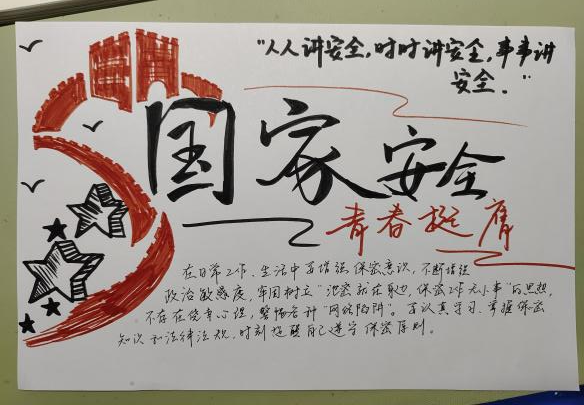 "人人讲安全,时时讲安全,事事讲
安全."
国家安全
青春挺膺
在日常工作、生活中要增强保密意识,不断增强
政治敏感度,牢固树立"泄密就在身边,保密工作无小事"的思想,
不存在侥幸心理,警惕各种"网络陷阱"。要认真学习、掌握保密
知识和法律法规,时刻提醒自己遵守保密原则。